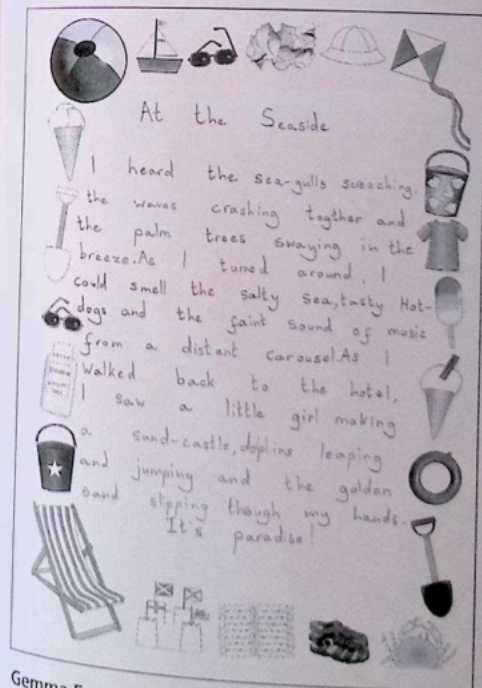 At the Seaside
I heard the sea-gulls sweeching.
the waves crashing togther and
the palm trees swaying in the
breeze.As I turned around, I
could smell the salty sea,tasty Hot-
dogs and the faint sound of music
from a distant carousel.As I
walked back to the hotel,
I saw a little girl making
a sand-castle, leaping
and jumping and the golden
sand slipping though my hands.
It's paradise!
Gemma